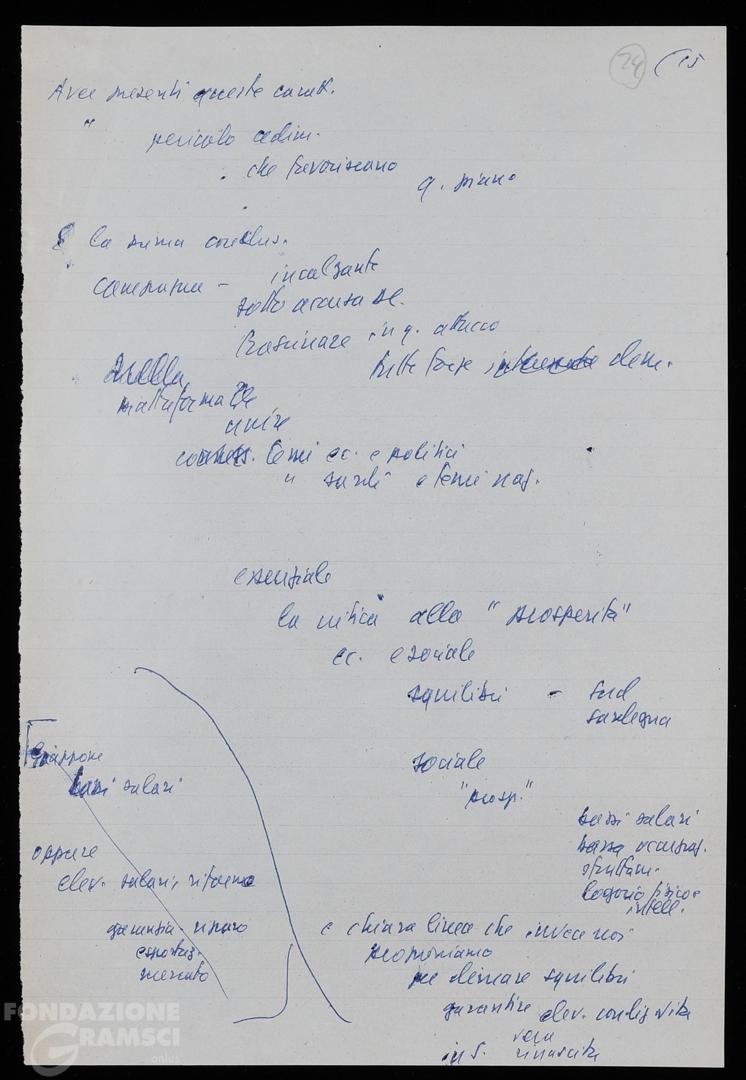 24 (15
Aver presenti queste caratt.
" pericolo cedim.
che favoriscano q. piano
E la prima conclus.
campagna - incalzante
sotto accusa DC.
trascinare in q. attacco
tutte forze dem.
Quella
piattaforma che
unire
conness. temi ec. e politici
" sardi e temi naz.
essenziale
la critica alla "prosperità"
ec. e sociale
squilibri - Sud
Sardegna
Giappone
bassi salari
sociale
"prosp."
bassi salari
bassa occupaz.
sfruttam.
logorio fisico e
intell.
oppure
elev. salari, riforme
garanzia
esportaz.
mercato
e chiara linea che invece noi
proponiamo
per eliminare squilibri
garantire elev. condiz. vita
vera
in S. rinascita
FONDAZIONE
GRAMSCI
onlus